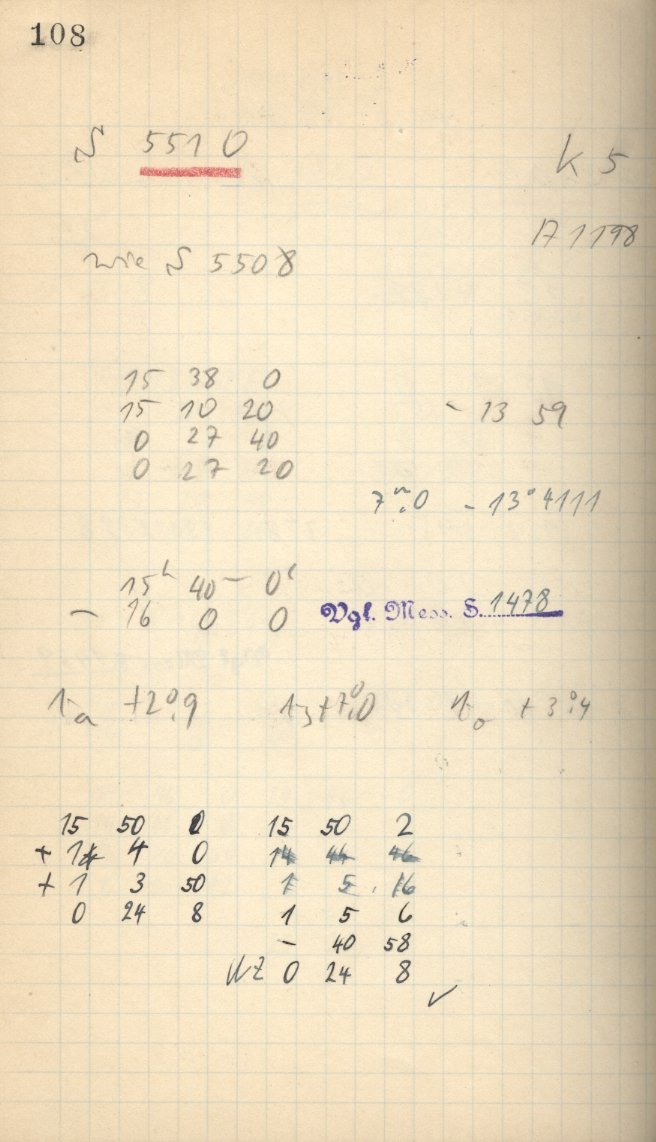 108
S 5510
K 5
A 1198
wie S 5508
15 38 0
15 10 20 - 13 59
0 27 40
0 27 20
7ᵐ.0 - 13°4111
15ʰ 40 - 0
- 16 0 0 Vgl. Mess. S. 1478
ta +2°.9 +7°.0 to +3°.4
15 50 0 15 50 2
+ 14 4 0 14 44 46
+ 1 3 50 1 5 16
0 24 8 1 5 6
- 40 58
WZ 0 24 8
✓